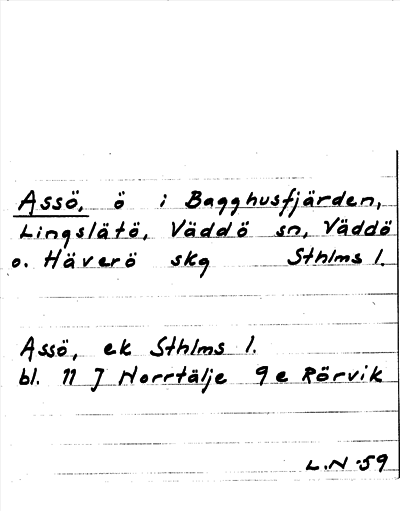 Assö, ö i Bagghusfjärden,
Lingslätö, Väddö sn, Väddö
o. Häverö skg Sthlms l.
Assö, ek Sthlms l.
bl. 11 J Norrtälje 9e Rörvik
L.N -59